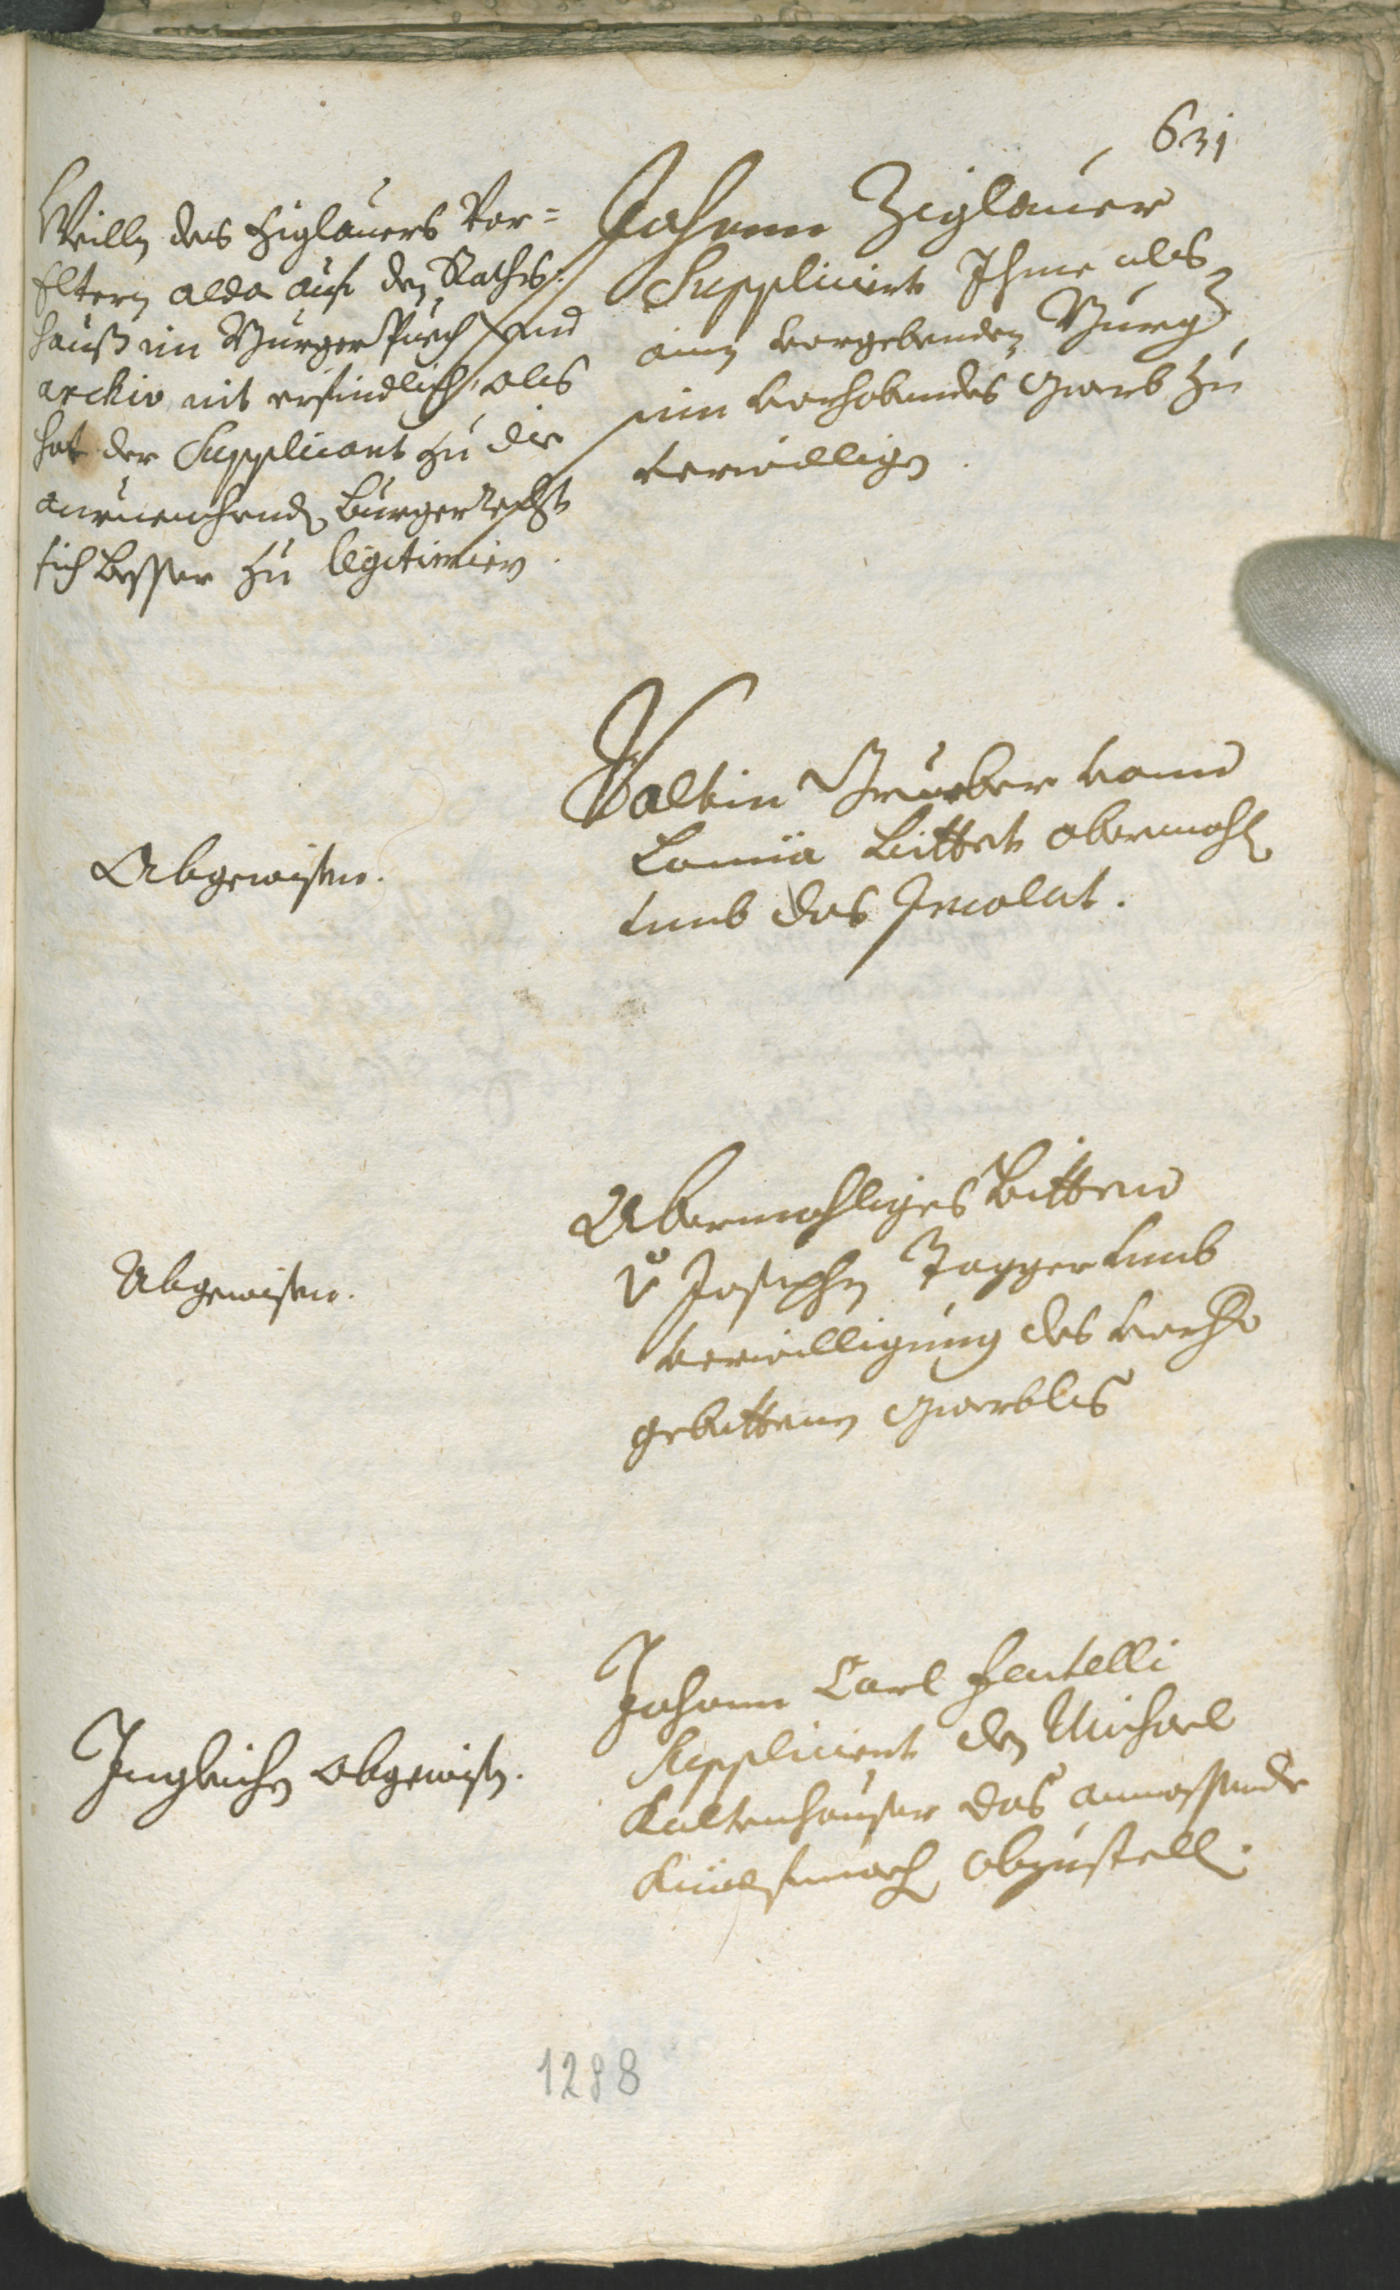 631
Weilln des Ziglauers Vor=
Eltern alda auf den Rathß:
hauß im Burger Puech und
archiv nit erfindlich, als
hat der Supplicant zu die
anruemendn Burgerrecht
sich besser zu legitimiern.
Johann Ziglauer
Supplicirt Ihme als
ainn vorgebenden Burg
sein vorhabendes Gwerb zu
verwilligen.
Abgewisen.
Valtin Grueber vom
bittet abermahl
umb das Incolat.
Abgewisen.
Abermahliges Bitten
v Josephn Jagger umb
verwilligung des vorho
gebettenen Gwerbls
Ingleichen abgewisn.
Johann Carl Zentelli
Supplicirt den Michael
Kaltenhauser das anmassende
abzustelln.
1288